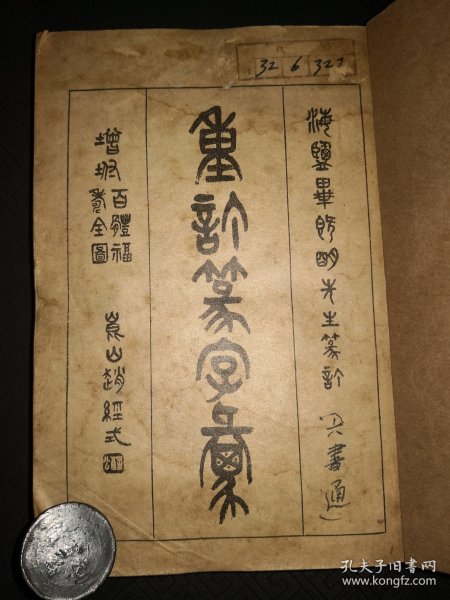 32 6 327
海鹽畢既明先生篆訂（六書通）
重訂篆字彙
增坿百體福
壽全圖
崑山趙經式
孔夫子旧书网
www.kongfz.com